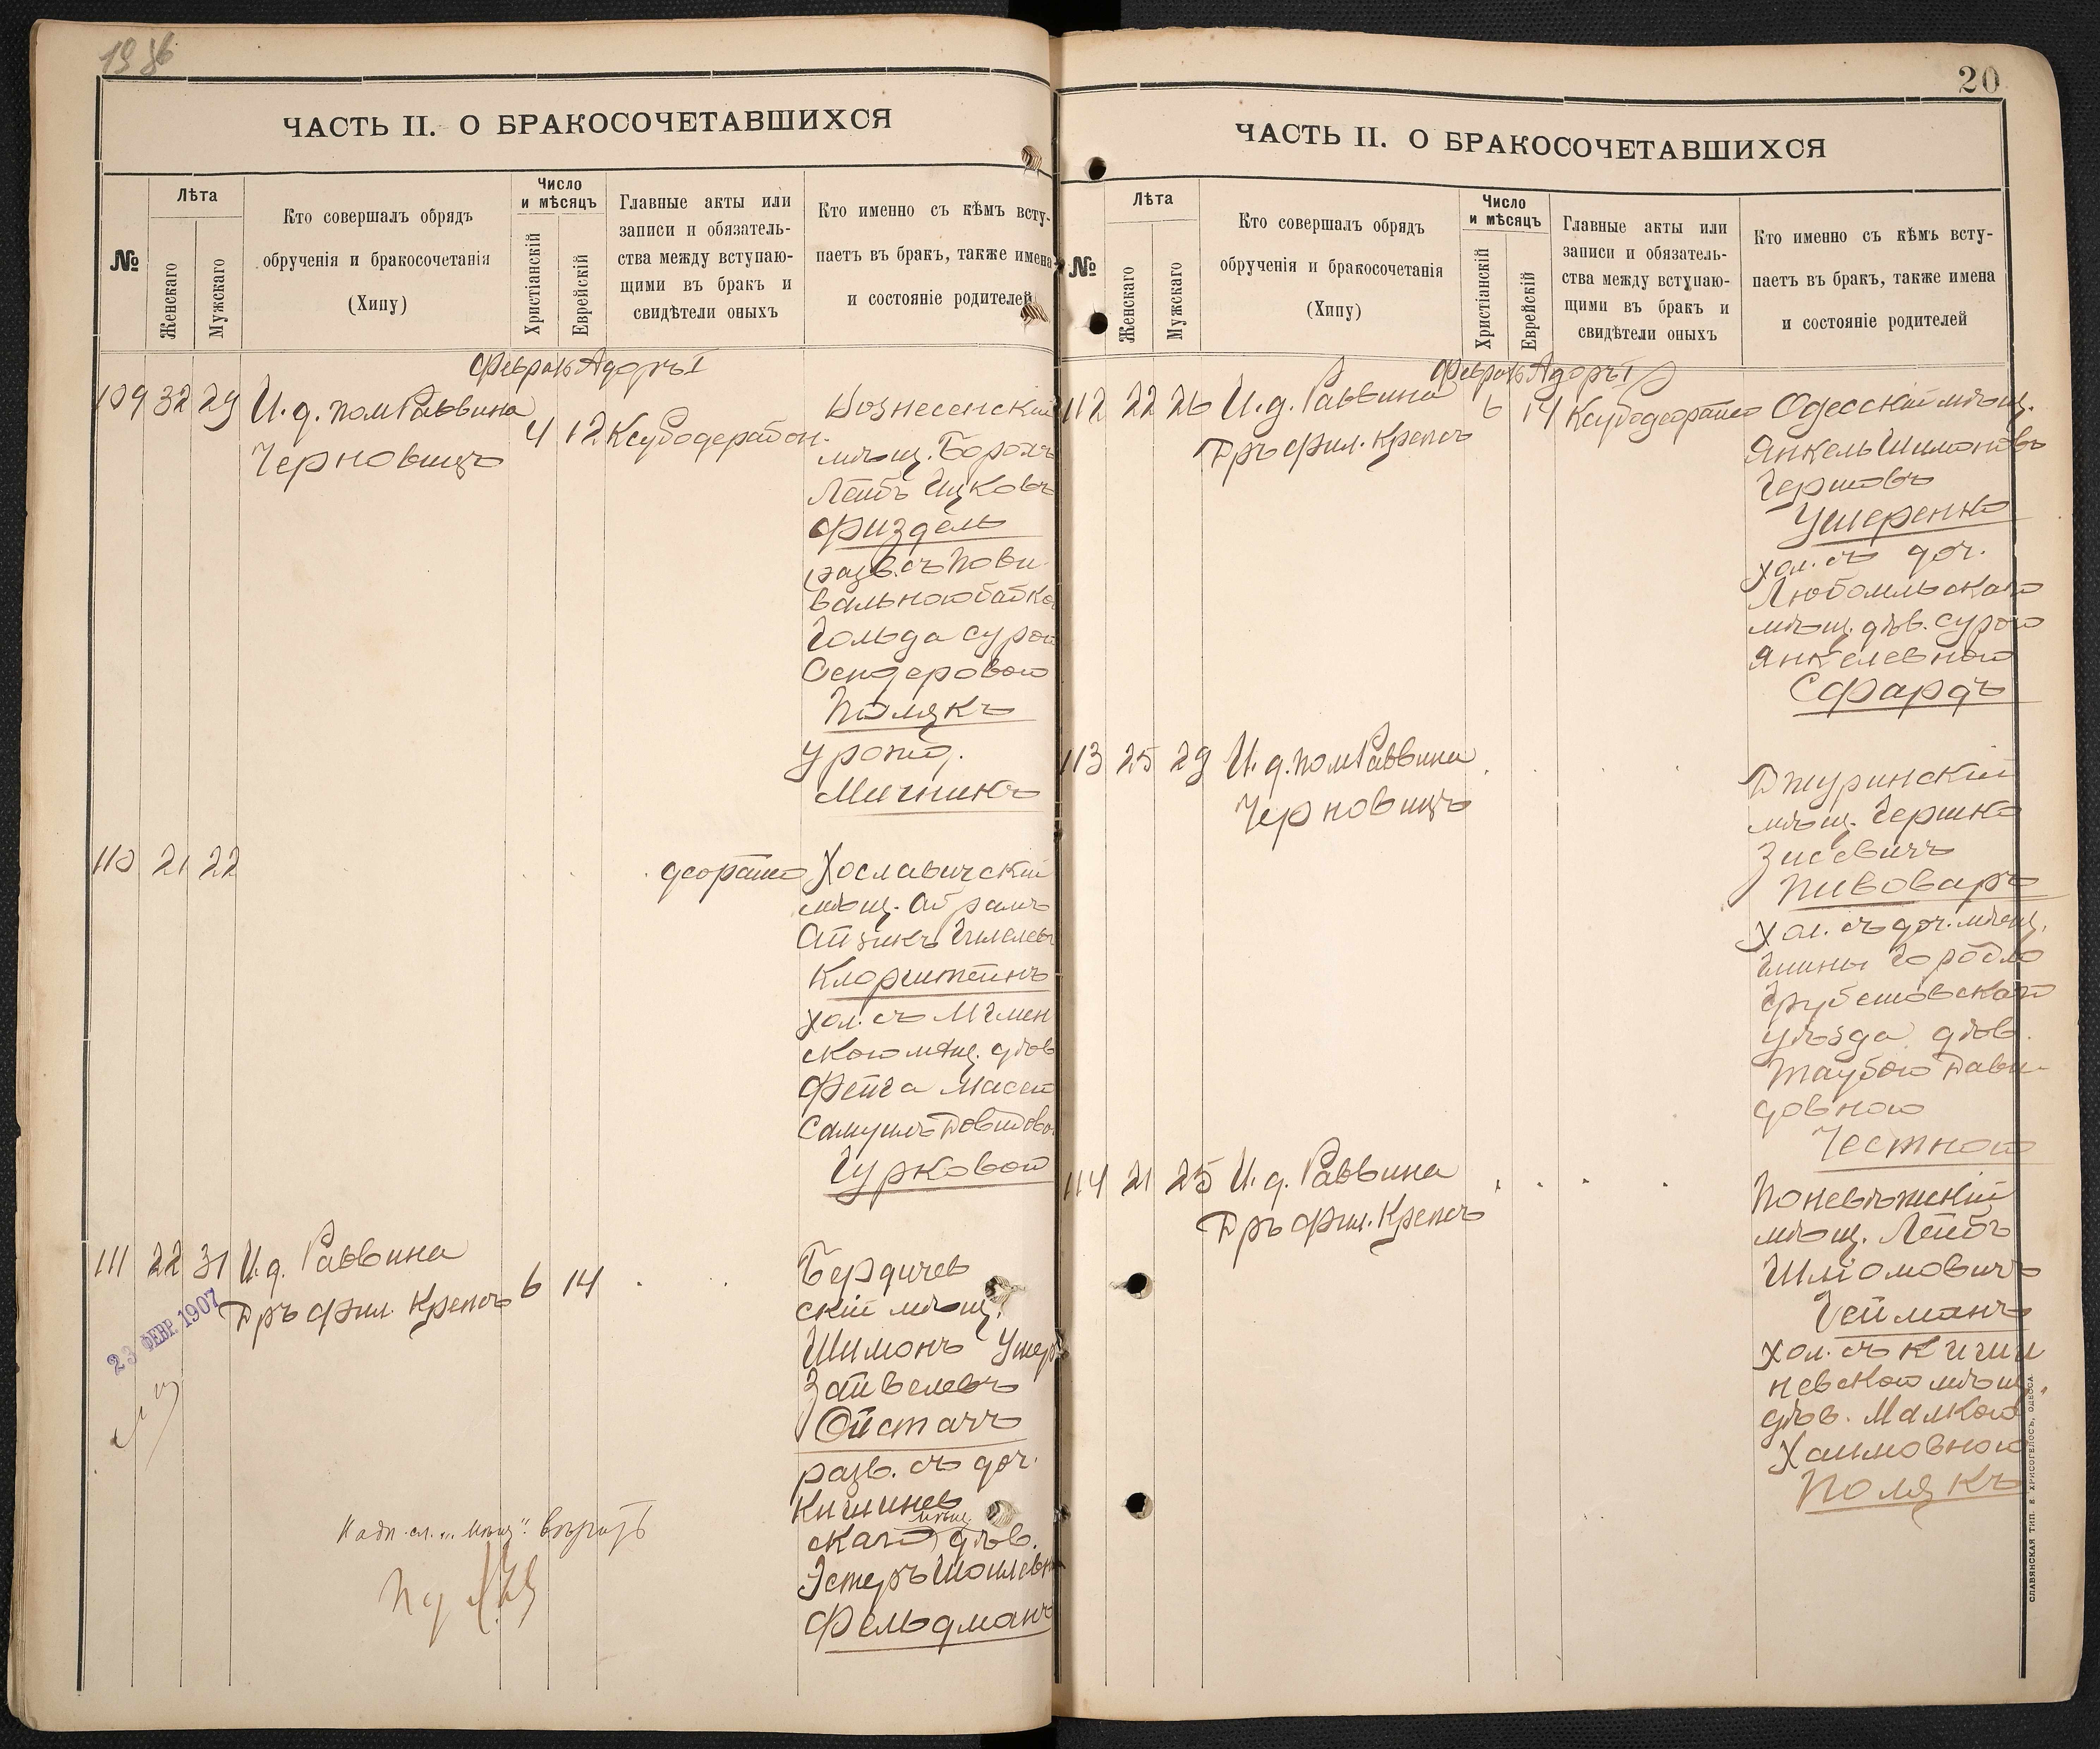 1936
ЧАСТЬ II. О БРАКОСОЧЕТАВШИХСЯ
№
Лѣта
Женскаго
Мужскаго
Кто совершалъ обрядъ
обрученія и бракосочетанія
(Хипу)
Число
и мѣсяцъ
Христіанскій
Еврейскій
Главные акты или
записи и обязатель-
ства между вступаю-
щими въ бракъ и
свидѣтели оныхъ
Кто именно съ кѣмъ всту-
паетъ въ бракъ, также имена
и состояніе родителей
Февраль Адоръ I
109 32 29 И. д. пом Раввина
Черновицъ
4 12 Ксубодерабон.
Вознесенскій
мѣщ. Борохъ
Лейбъ Ицковъ
Физдель
разв. съ пови
вальной бабкой
Гольда Сурой
Сендеровой
Полякъ
урожд.
Мичникъ
110 21 22
деорайсо
Хославичскій
мѣщ. Абрамъ
Айзикъ Гилелевъ
Клорштейнъ
хол. съ Мглин
ской мѣщ. дѣв
Фейга Масей
Самуилъ Довидовой
Гурковой
111 22 31 И. д. Раввина
Дръ фил. Крепсъ 6 14
23 ФЕВР. 1907
Бердичев
скій мѣщ.
Шимонъ Ушеръ
Зайвелевъ
Ойстачъ
разв. съ доч.
Кишинев
мѣщ.
скаго дѣв.
Эстеръ Шоилевн
Фельдманъ
Надп. сл. „мѣщ“ вѣрить
20
ЧАСТЬ II. О БРАКОСОЧЕТАВШИХСЯ
№
Лѣта
Женскаго
Мужскаго
Кто совершалъ обрядъ
обрученія и бракосочетанія
(Хипу)
Число
и мѣсяцъ
Христіанскій
Еврейскій
Главные акты или
записи и обязатель-
ства между вступаю-
щими въ бракъ и
свидѣтели оныхъ
Кто именно съ кѣмъ всту-
паетъ въ бракъ, также имена
и состояніе родителей
Февраль Адоръ I
112 22 26 И. д. Раввина
Дръ фил. Крепсъ
6 14 Ксубодеорайсо
Одесскій мѣщ.
Янкель Шимоновъ
Гершовъ
Ушеренко
хол. съ доч.
Любомльскаго
мѣщ. дѣв. Сурою
Янкелевною
Сфардъ
113 25 29 И. д. пом Раввина
Черновицъ
Джуринскій
мѣщ. Гершко
Зисевичъ
Пивоваръ
хол. съ доч. мѣщ.
гмины Городло
Грубешовскаго
уѣзда дѣв.
Таубою Дави-
довною
Честной
114 21 25 И. д. Раввина
Дръ фил. Крепсъ
Поневѣжскій
мѣщ. Лейбъ
Шліомовичъ
Гейманъ
хол. съ Кишин
невской мѣщ.
дѣв. Малкою
Хаимовною
Полякъ
СЛАВЯНСКАЯ ТИП. Е. ХРИСОГЕЛОСЪ, ОДЕССА.